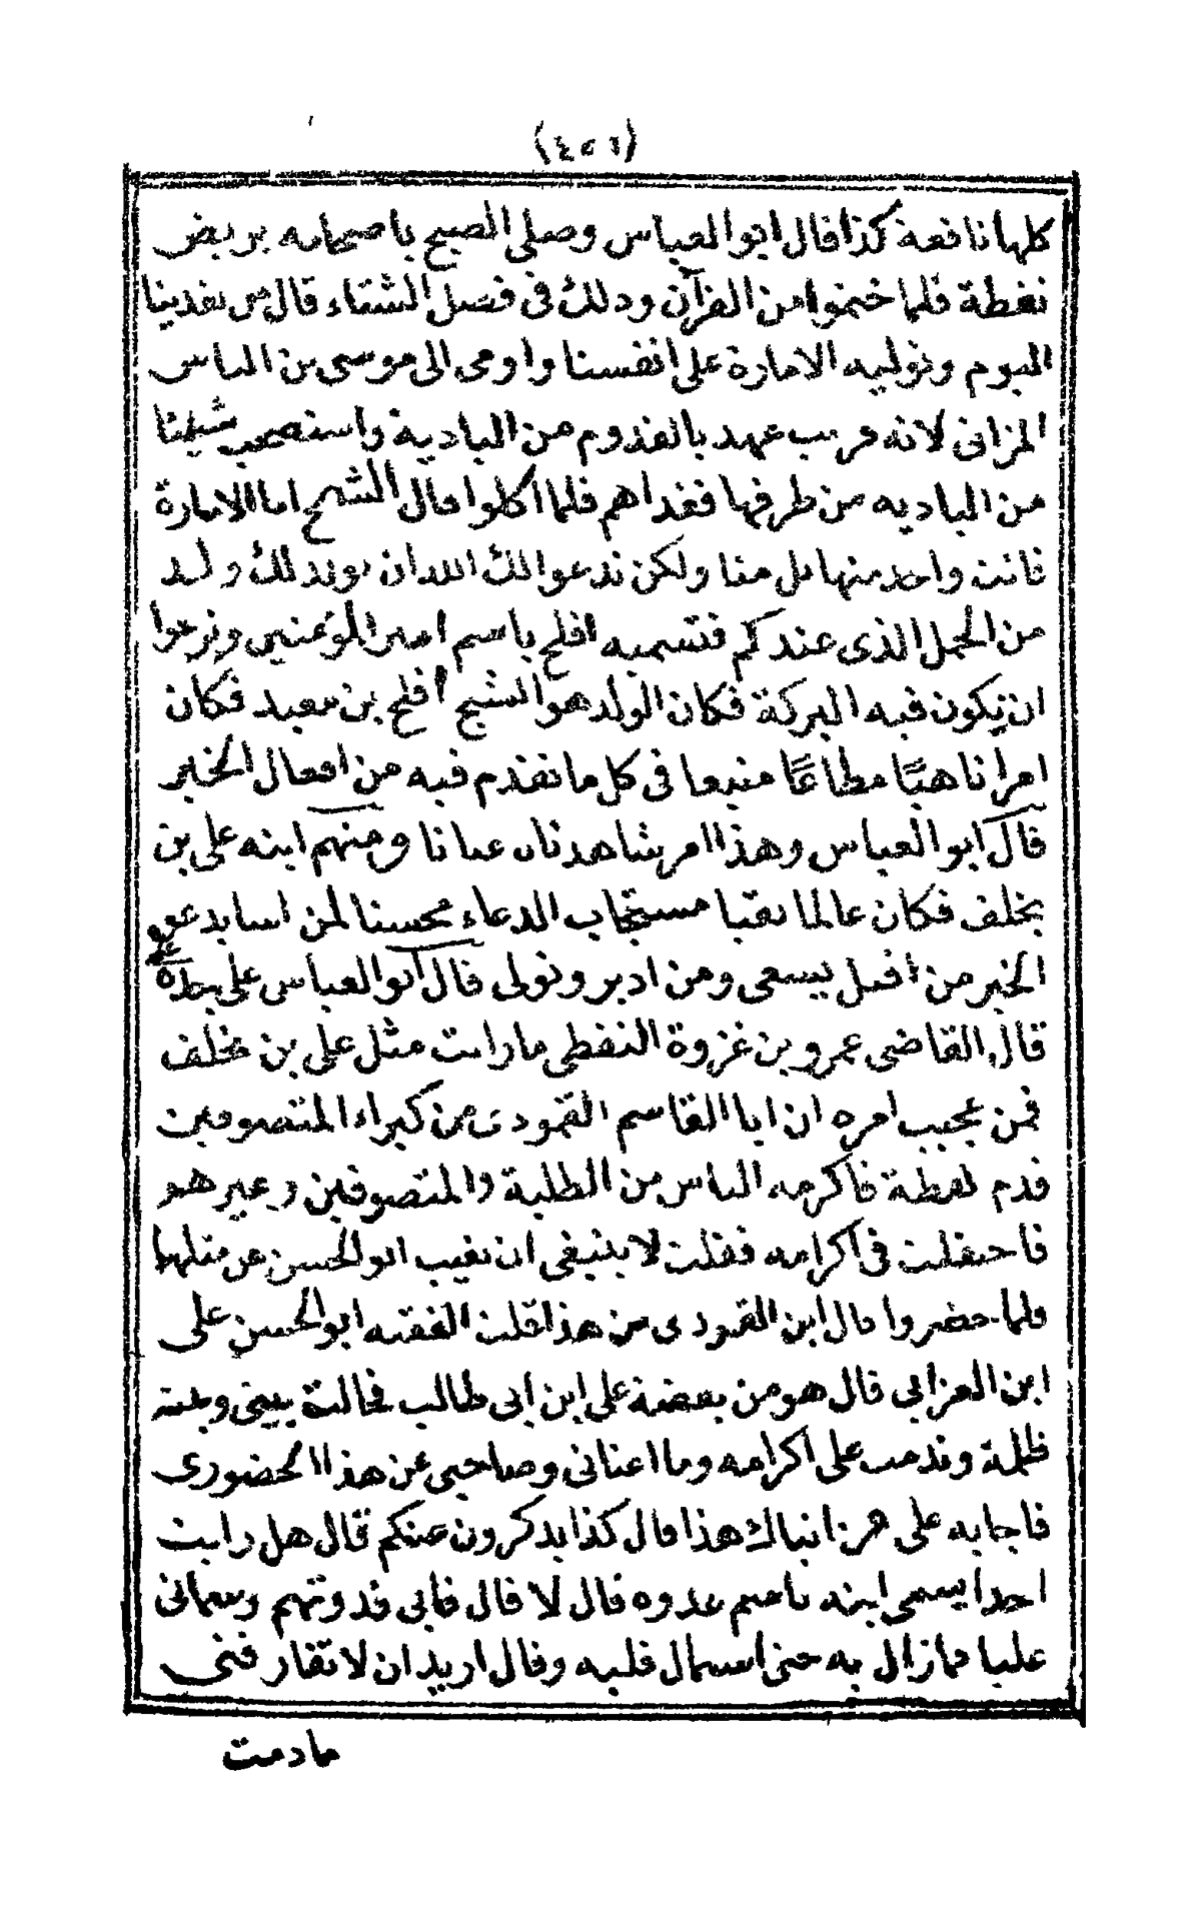 (٤٥٦)
كلها نافعة كذا قال ابو العباس وصلى الصبح باصحابه بربض
نفطة فلما ختموا من القرآن وذلك في فصل الشتاء قال من يغدينا
اليوم ونوليه الامارة على انفسنا واومى الى موسى بن الياس
المزاتي لانه قريب عهد بالقدوم من البادية واستصحب شيئا
من الباديه من طرفها فغداهم فلما اكلوا قال الشيخ اما الامارة
فانت واحد منها مل منا ولكن ندعوا لك الله ان يولد لك ولد
من الحمل الذي عندكم فتسميه افلح باسم امير المؤمنين ونرجوا
ان يكون فيه البركة فكان الولد هو الشيخ افلح بن معبد فكان
امرا ناهيًا مطاعًا متبعا في كل ما تقدم فيه من افعال الخير
قال ابو العباس وهذا امر شاهدناه عيانا ومنهم ابنه على بن
يخلف فكان عالما تقيا مستجاب الدعاء محسنا لمن اسا يدعو
الخير من اقبل يسعى ومن ادبر وتولى قال ابو العباس على بن
قال القاضى عمرو بن غزوة النفطى ما رايت مثل على بن يخلف
فمن عجيب امره ان ابا القاسم القمودى من كبراء المتصوفين
قدم نفطة فاكرمه الناس من الطلبة والمتصوفين وغيرهم
فاحتفلت في اكرامه فقلت لا ينبغي ان نغيب ابو الحسن عن مثلها
ولما حضروا قال ابن القمودى من هذا قلت الفقيه ابو الحسن على
ابن العزابي قال هو من بغضة على ابن ابى طالب فحالت بيني وبينه
ظلمة وندمت على اكرامه وما اعناني وصاحبي عن هذا الحضورى
فاجابه على من انباك هذا قال كذا يذكرون عنكم قال هل رايت
احدا يسمى ابنه باسم عدوه قال لا قال فابى قدوتهم وسمانى
عليا فمازال به حتى استمال قلبه وقال اريد ان لا تفارقني
مادمت